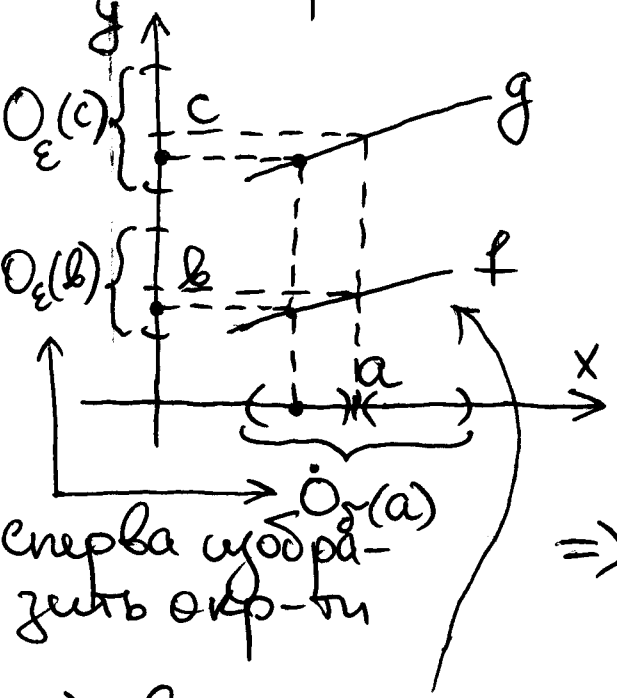 y
O_ε(c) c g
O_ε(b) b f
a x
Ȯ_δ(a)
сперва изобра-
зить окр-ти =>